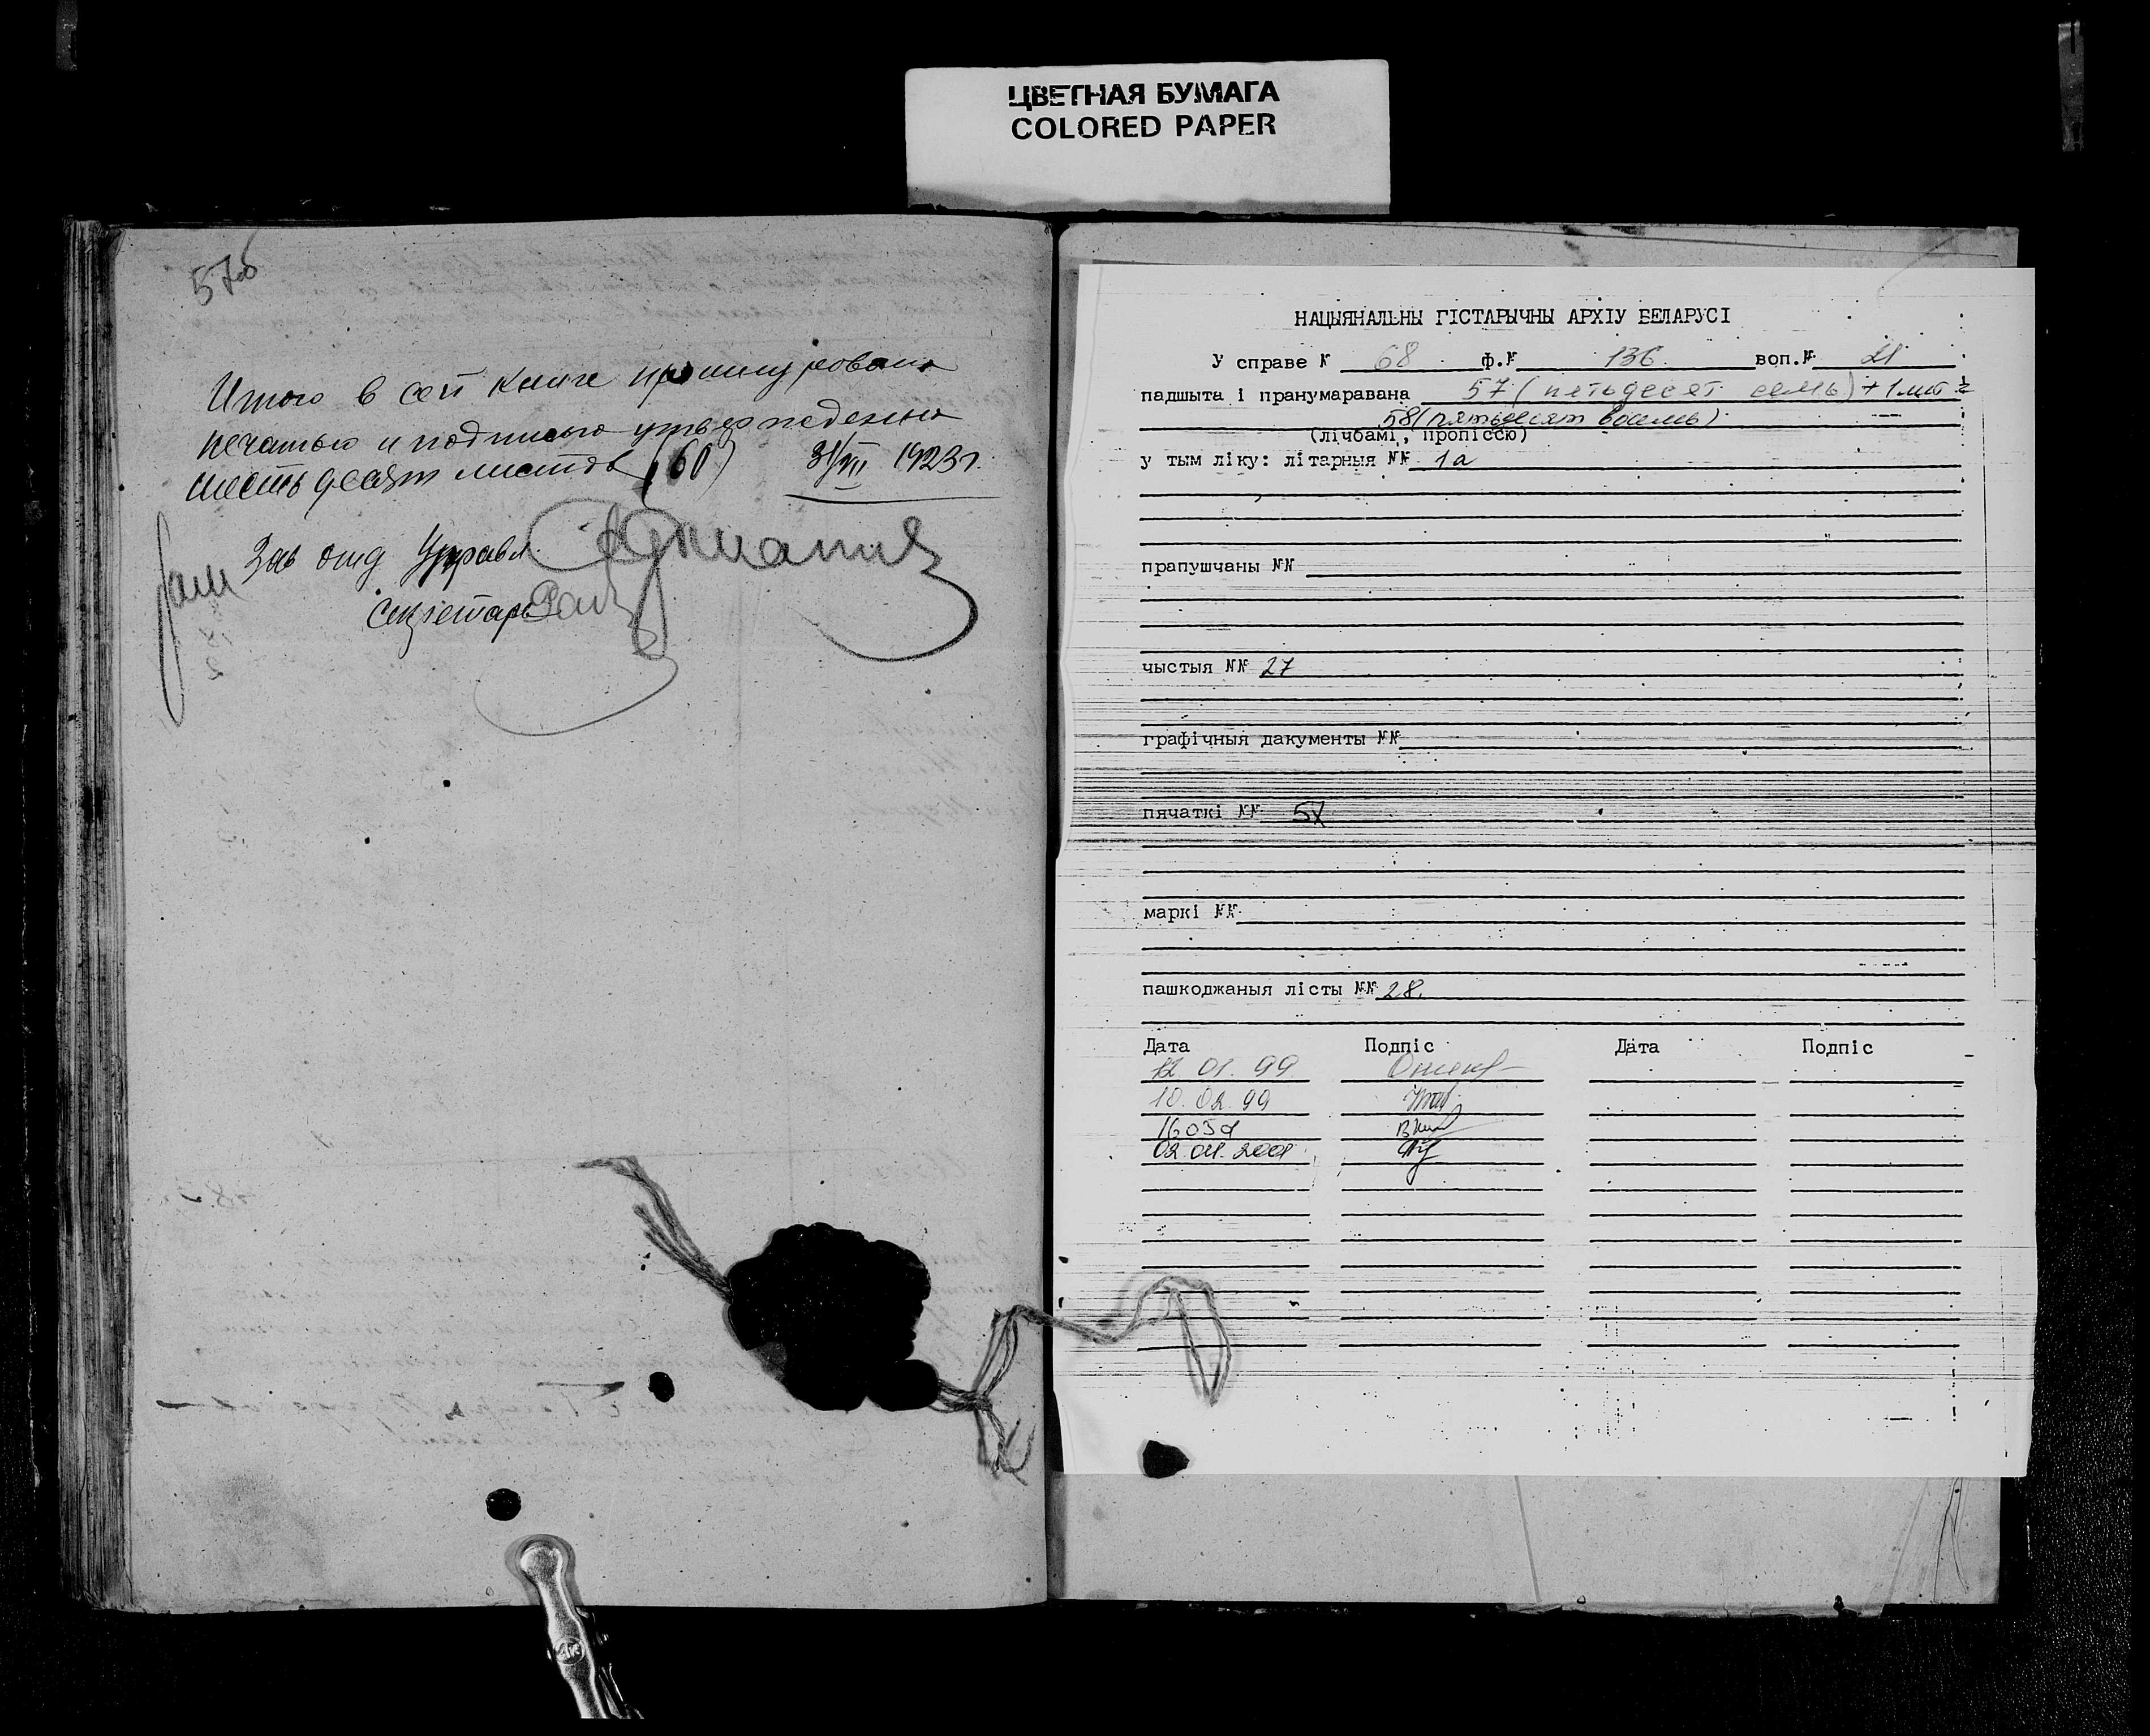 ЦВЕТНАЯ БУМАГА
COLORED PAPER
57об
Итого в сей книге прошнуровано
печатью и подписью утверждено
шестьдесят листов (60) 31/VII 1923 г.
Зав отд Управл.
Секретарь
НАЦЫЯНАЛЬНЫ ГІСТАРЫЧНЫ АРХІУ БЕЛАРУСІ
У справе № 68 ф.№ 136 воп.№ 21
падшыта і пранумаравана 57 (пятьдесят семь) + 1 лит
58 (пятьдесят восемь)
(лічбамі, пропіссю)
у тым ліку: літарныя №№ 1а
прапушчаны №№
чыстыя №№ 27
графічныя дакументы №№
пячаткі №№ 57
маркі №№
пашкоджаныя лісты №№ 28.
Дата Подпіс Дата Подпіс
12.01.99
10.02.99